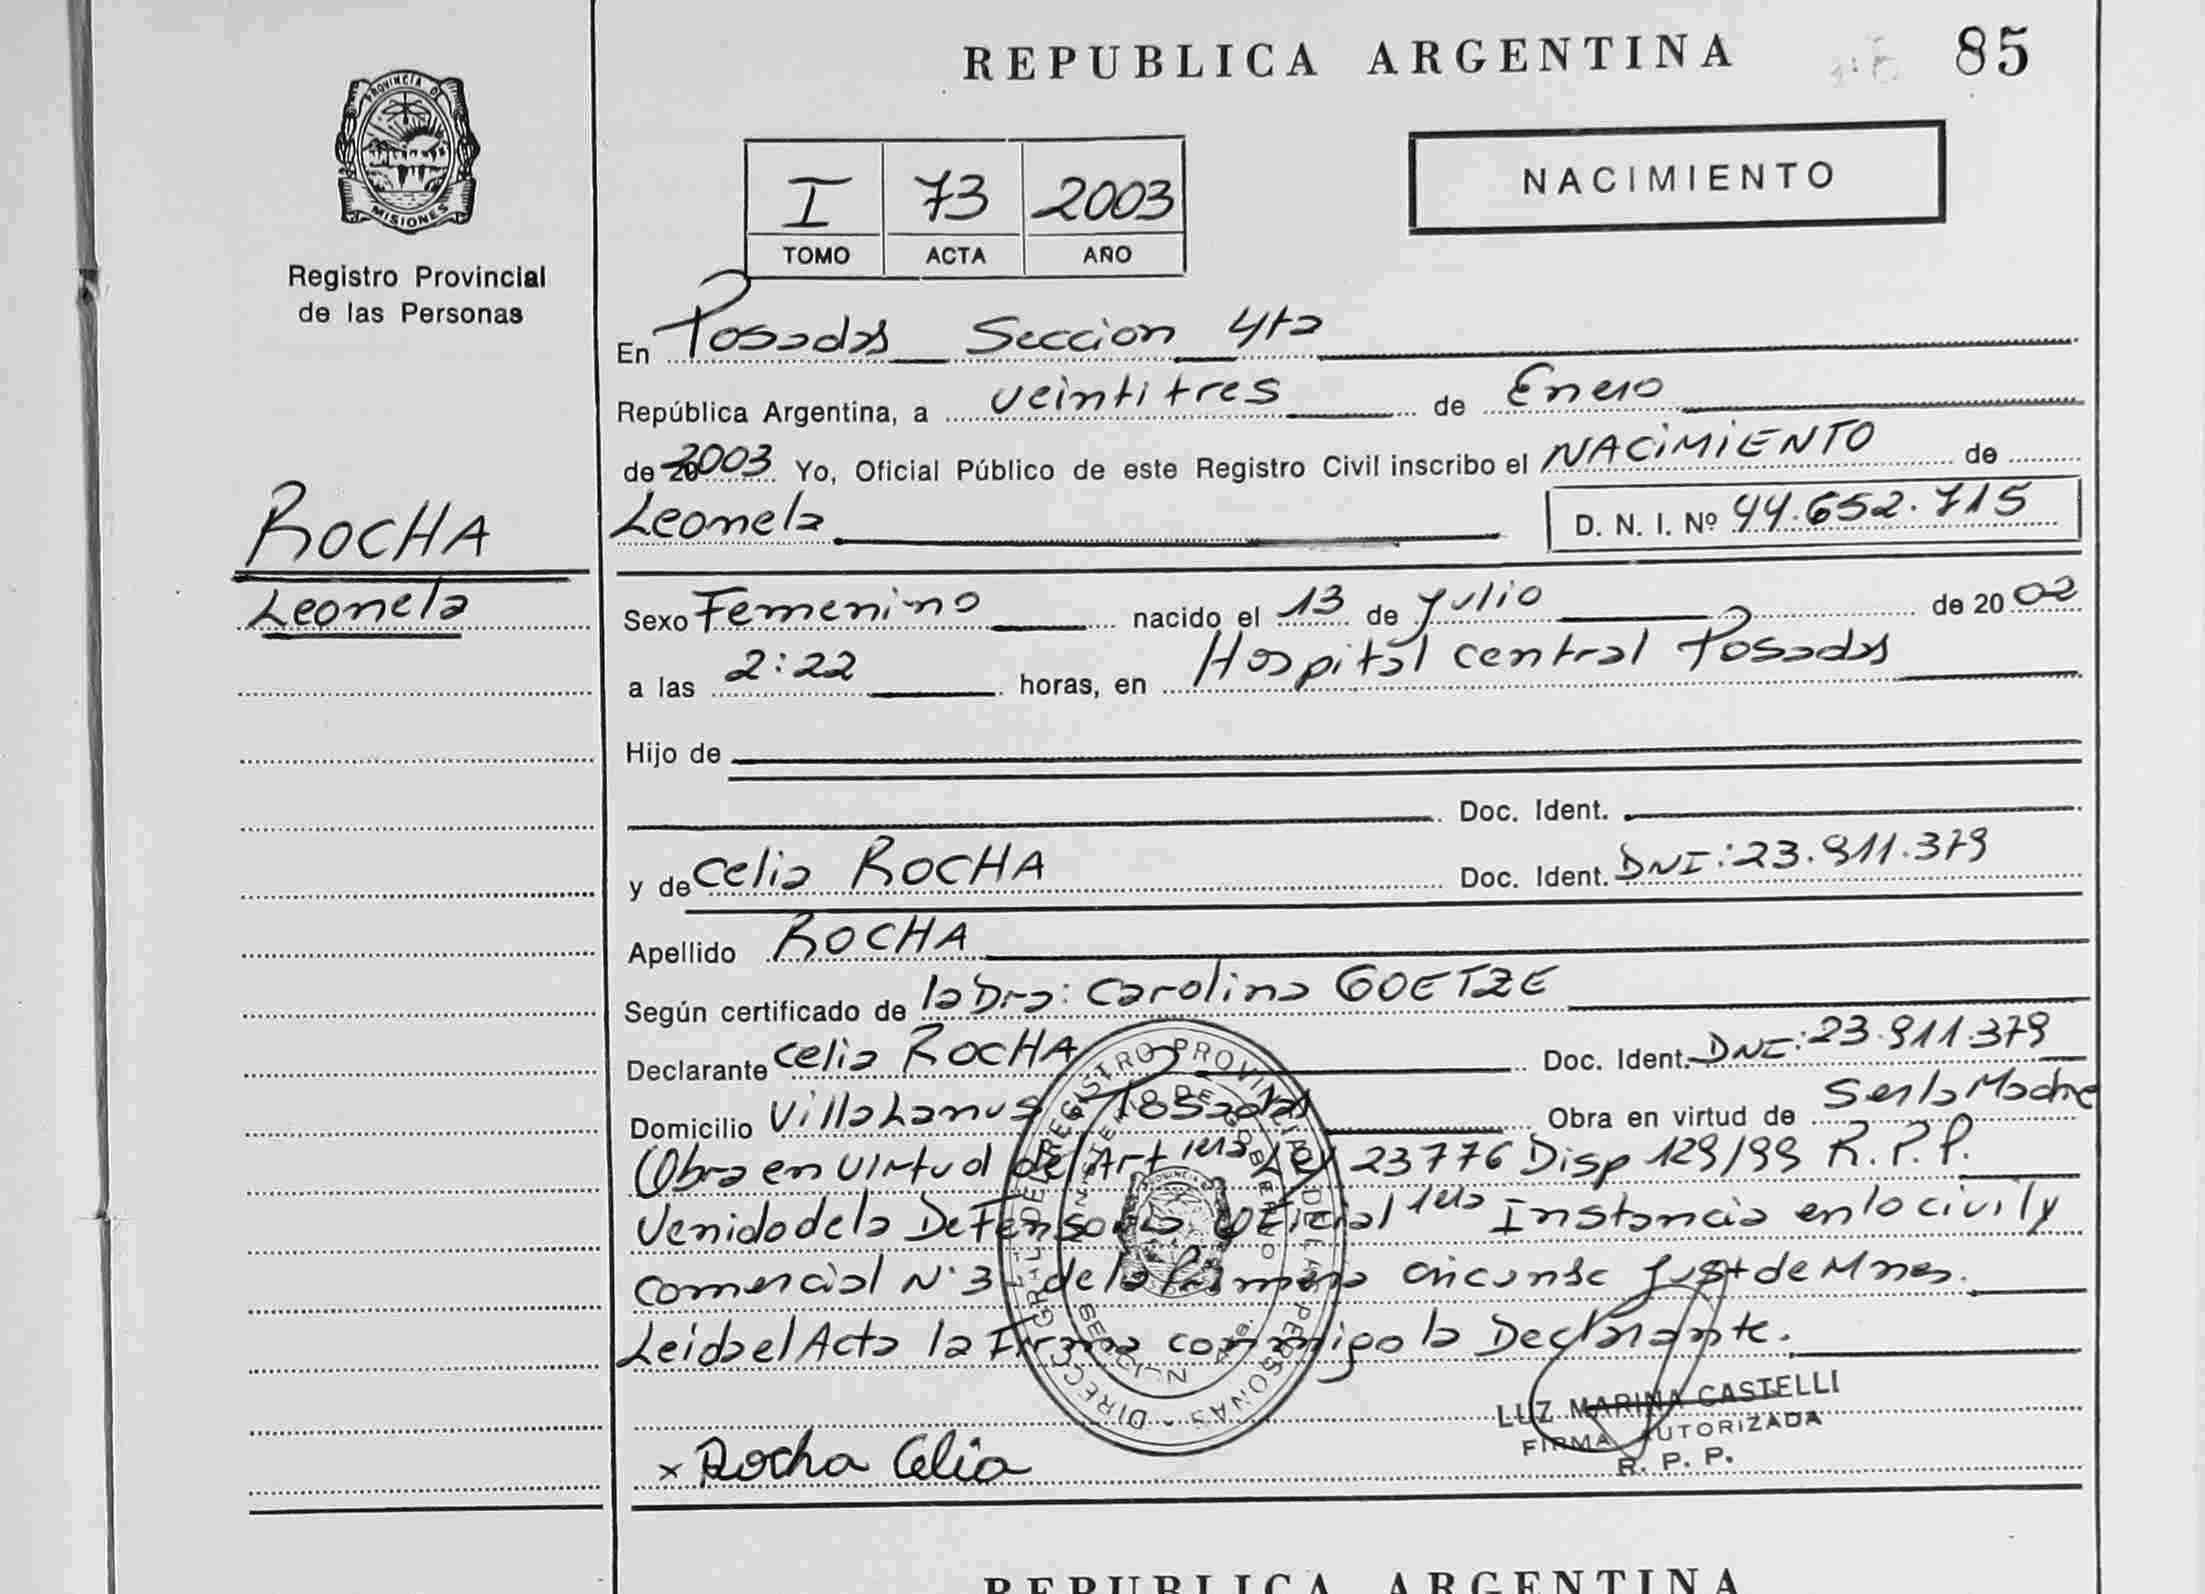 REPUBLICA ARGENTINA
85
PROVINCIA DE
MISIONES
Registro Provincial
de las Personas
I 73 2003
TOMO ACTA AÑO
NACIMIENTO
En Posadas Seccion 4ta
República Argentina, a veintitres de Enero
de 2003 Yo, Oficial Público de este Registro Civil inscribo el NACIMIENTO de
Leonela D. N. I. Nº 44.652.715
ROCHA
Leonela
Sexo Femenino nacido el 13 de Julio de 2002
a las 2:22 horas, en Hospital central Posadas
Hijo de
Doc. Ident.
y de Celia ROCHA Doc. Ident. DNI: 23.911.379
Apellido ROCHA
Según certificado de la Dra: Carolina GOETZE
Declarante Celia ROCHA Doc. Ident. DNI: 23.911.379
Domicilio Villa Lanus Posadas Obra en virtud de Ser la Madre
Obra en virtud del Art 1era Ley 23776 Disp 129/99 R.P.P.
Venido de la Defensoria Oficial 1era Instancia en lo civil y
comercial Nº 3 de la Primera circunsc Just de Mnes.
Leida el Acta la Firma conmigo la Declarante.
DIRECC. GRAL. DEL REGISTRO PROVINCIAL DE LAS PERSONAS
MINISTERIO DE GOBIERNO
SECCION 4ta.
LUZ MARINA CASTELLI
FIRMA AUTORIZADA
R. P. P.
x Rocha Celia
REPUBLICA ARGENTINA